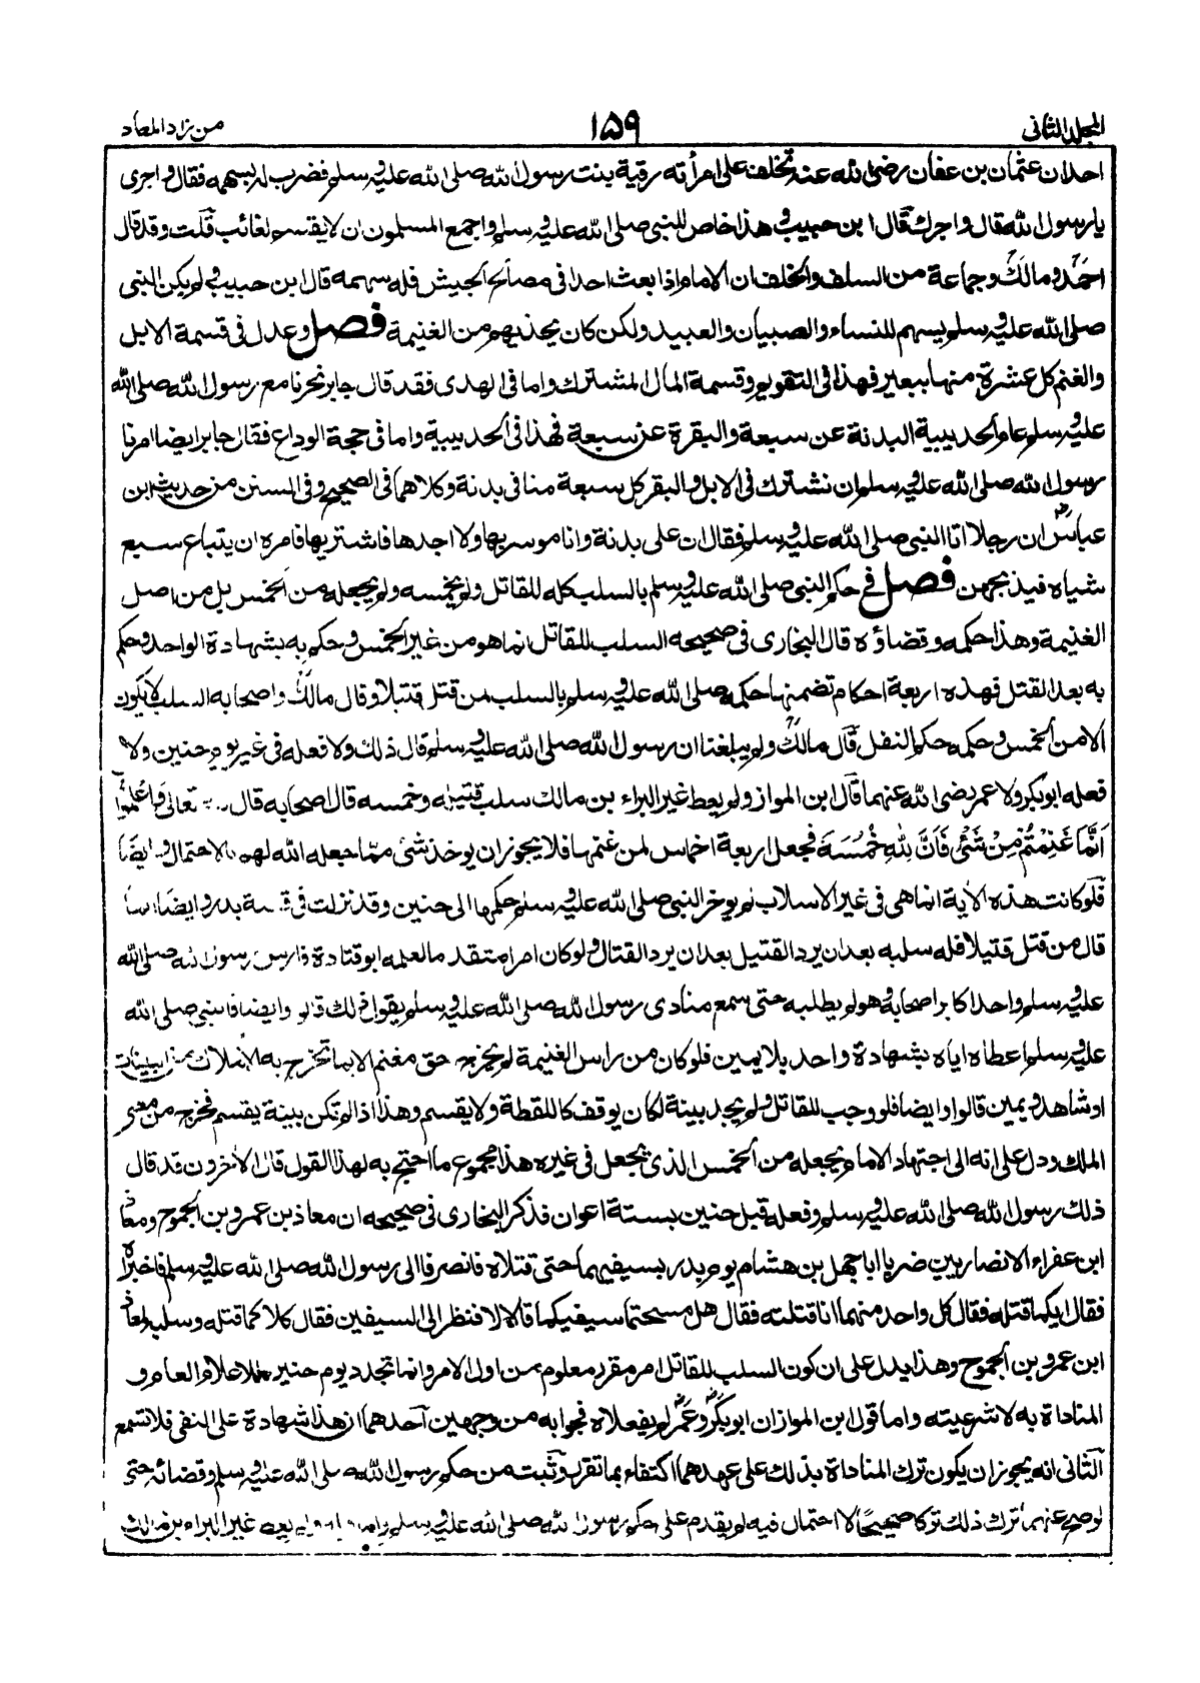 المجلد الثانى ١٥٩ من زاد المعاد
احد ان عثمان بن عفان رضى الله عنه تخلف على امرأته رقية بنت رسول الله صلى الله عليه وسلم فضرب له بسهمه فقال و اجرى
يا رسول الله قال و اجرك قال ابن حبيب و هذا خاص للنبى صلى الله عليه وسلم واجمع المسلمون ان لا يقسم لغائب قلت و قد قال
احمد و مالك و جماعة من السلف والخلف ان الامام اذا بعث احدا فى مصالح الجيش فله سهمه قال ابن حبيب و لم يكن النبى
صلى الله عليه وسلم يسهم للنساء والصبيان والعبيد ولكن كان يحذيهم من الغنيمة فصل و عدل فى قسمة الابل
والغنم كل عشرة منها ببعير فهذا فى التقويم و قسمة المال المشترك و اما فى الهدى فقد قال جابر نحرنا مع رسول الله صلى الله
عليه وسلم عام الحديبية البدنة عن سبعة والبقرة عن سبعة فهذا فى الحديبية واما فى حجة الوداع فقال جابر ايضا امرنا
رسول الله صلى الله عليه وسلم ان نشترك فى الابل والبقر كل سبعة منا فى بدنة وكلاهما فى الصحيح و فى السنن من حديث ابن
عباس ان رجلا اتا النبى صلى الله عليه وسلم فقال ان على بدنة و انا موسر بها ولا اجدها فاشتريها فامره ان يتباع سبع
شياه فيذبحهن فصل فى حكم النبى صلى الله عليه وسلم بالسلب كله للقاتل ولم يخمسه ولم يجعله من الخمس بل من اصل
الغنيمة وهذا حكمه و قضاؤه قال البخارى فى صحيحه السلب للقاتل انما هو من غير الخمس و حكم به بشهادة الواحد وحكم
به بعد القتل فهذه اربعة احكام تضمنها حكمه صلى الله عليه وسلم بالسلب لمن قتل قتيلا وقال مالك و اصحابه السلب لا يكون
الا من الخمس و حكمه حكم النفل قال مالك ولم يبلغنا ان رسول الله صلى الله عليه وسلم قال ذلك ولا فعله فى غير يوم حنين ولا
فعله ابوبكر ولا عمر رضى الله عنهما قال ابن المواز و لم يعط غير البراء بن مالك سلب قتيله و خمسه قال اصحابه قال تعالى وَاعْلَمُوا
اَنَّمَا غَنِمْتُمْ مِنْ شَىْءٍ فَاَنَّ لِلهِ خُمُسَهُ فجعل اربعة اخماس لمن غنمها فلا يجوز ان يوخذ شئ مما جعله الله لهم بالاحتمال و ايضًا
فلو كانت هذه الآية انما هى فى غير الاسلاب لم يوخر النبى صلى الله عليه وسلم حكمها الى حنين وقد نزلت فى قصة بدر و ايضا انما
قال من قتل قتيلا فله سلبه بعد ان يرد القتيل بعد ان يرد القتال ولو كان امرا متقد ما لعلمه ابو قتادة فارس رسول الله صلى الله
عليه وسلم واحد اكابر اصحابه و هو لم يطلبه حتى سمع منادى رسول الله صلى الله عليه وسلم يقول ذلك قالوا وايضا فالنبى صلى الله
عليه وسلم اعطاه اياه بشهادة واحد بلا يمين فلو كان من راس الغنيمة لم يخرج حق مغنم الا بما تخرج به الاملاك من البينات
او شاهد و يمين قالوا وايضا فلو وجب للقاتل ولم يجد بينة لكان يوقف كاللقطة ولا يقسم وهذا اذا لم تكن بينة يقسم فخرج من معنى
الملك و دل على انه الى اجتهاد الامام يجعله من الخمس الذى يجعل فى غيره هذا مجموع ما احتج به لهذا القول قال الآخرون قد قال
ذلك رسول الله صلى الله عليه وسلم و فعله قبل حنين بستة اعوان فذكر البخارى فى صحيحه ان معاذ بن عمرو بن الجموح ومعاذ
ابن عفراء الانصاريين ضربا اباجهل بن هشام يوم بدر بسيفيهما حتى قتلاه فانصرفا الى رسول الله صلى الله عليه وسلم فاخبراه
فقال ايكما قتله فقال كل واحد منهما انا قتلته فقال هل مسحتما سيفيكما قالا لا فنظر الى السيفين فقال كلاكما قتله و سلبه لمعاذ
ابن عمرو بن الجموح و هذا يدل على ان كون السلب للقاتل امر مقرر معلوم من اول الامر و انما تجدد يوم حنين الاعلام العام و
المناداة به لا شرعيته و اما قول ابن المواز ان ابوبكر وعمر لم يفعلاه فجوابه من وجهين احدهما ان هذا شهادة على النفى فلا تسمع
الثانى انه يجوز ان يكون ترك المناداة بذلك على عهدهما اكتفاء بما تقرر و ثبت من حكم رسول الله صلى الله عليه وسلم و قضائه حتى
لو صح عنهما ترك ذلك تركا صحيحا لا احتمال فيه لم يقدم على حكم رسول الله صلى الله عليه وسلم و اما قوله لم يعط غير البراء بن مالك